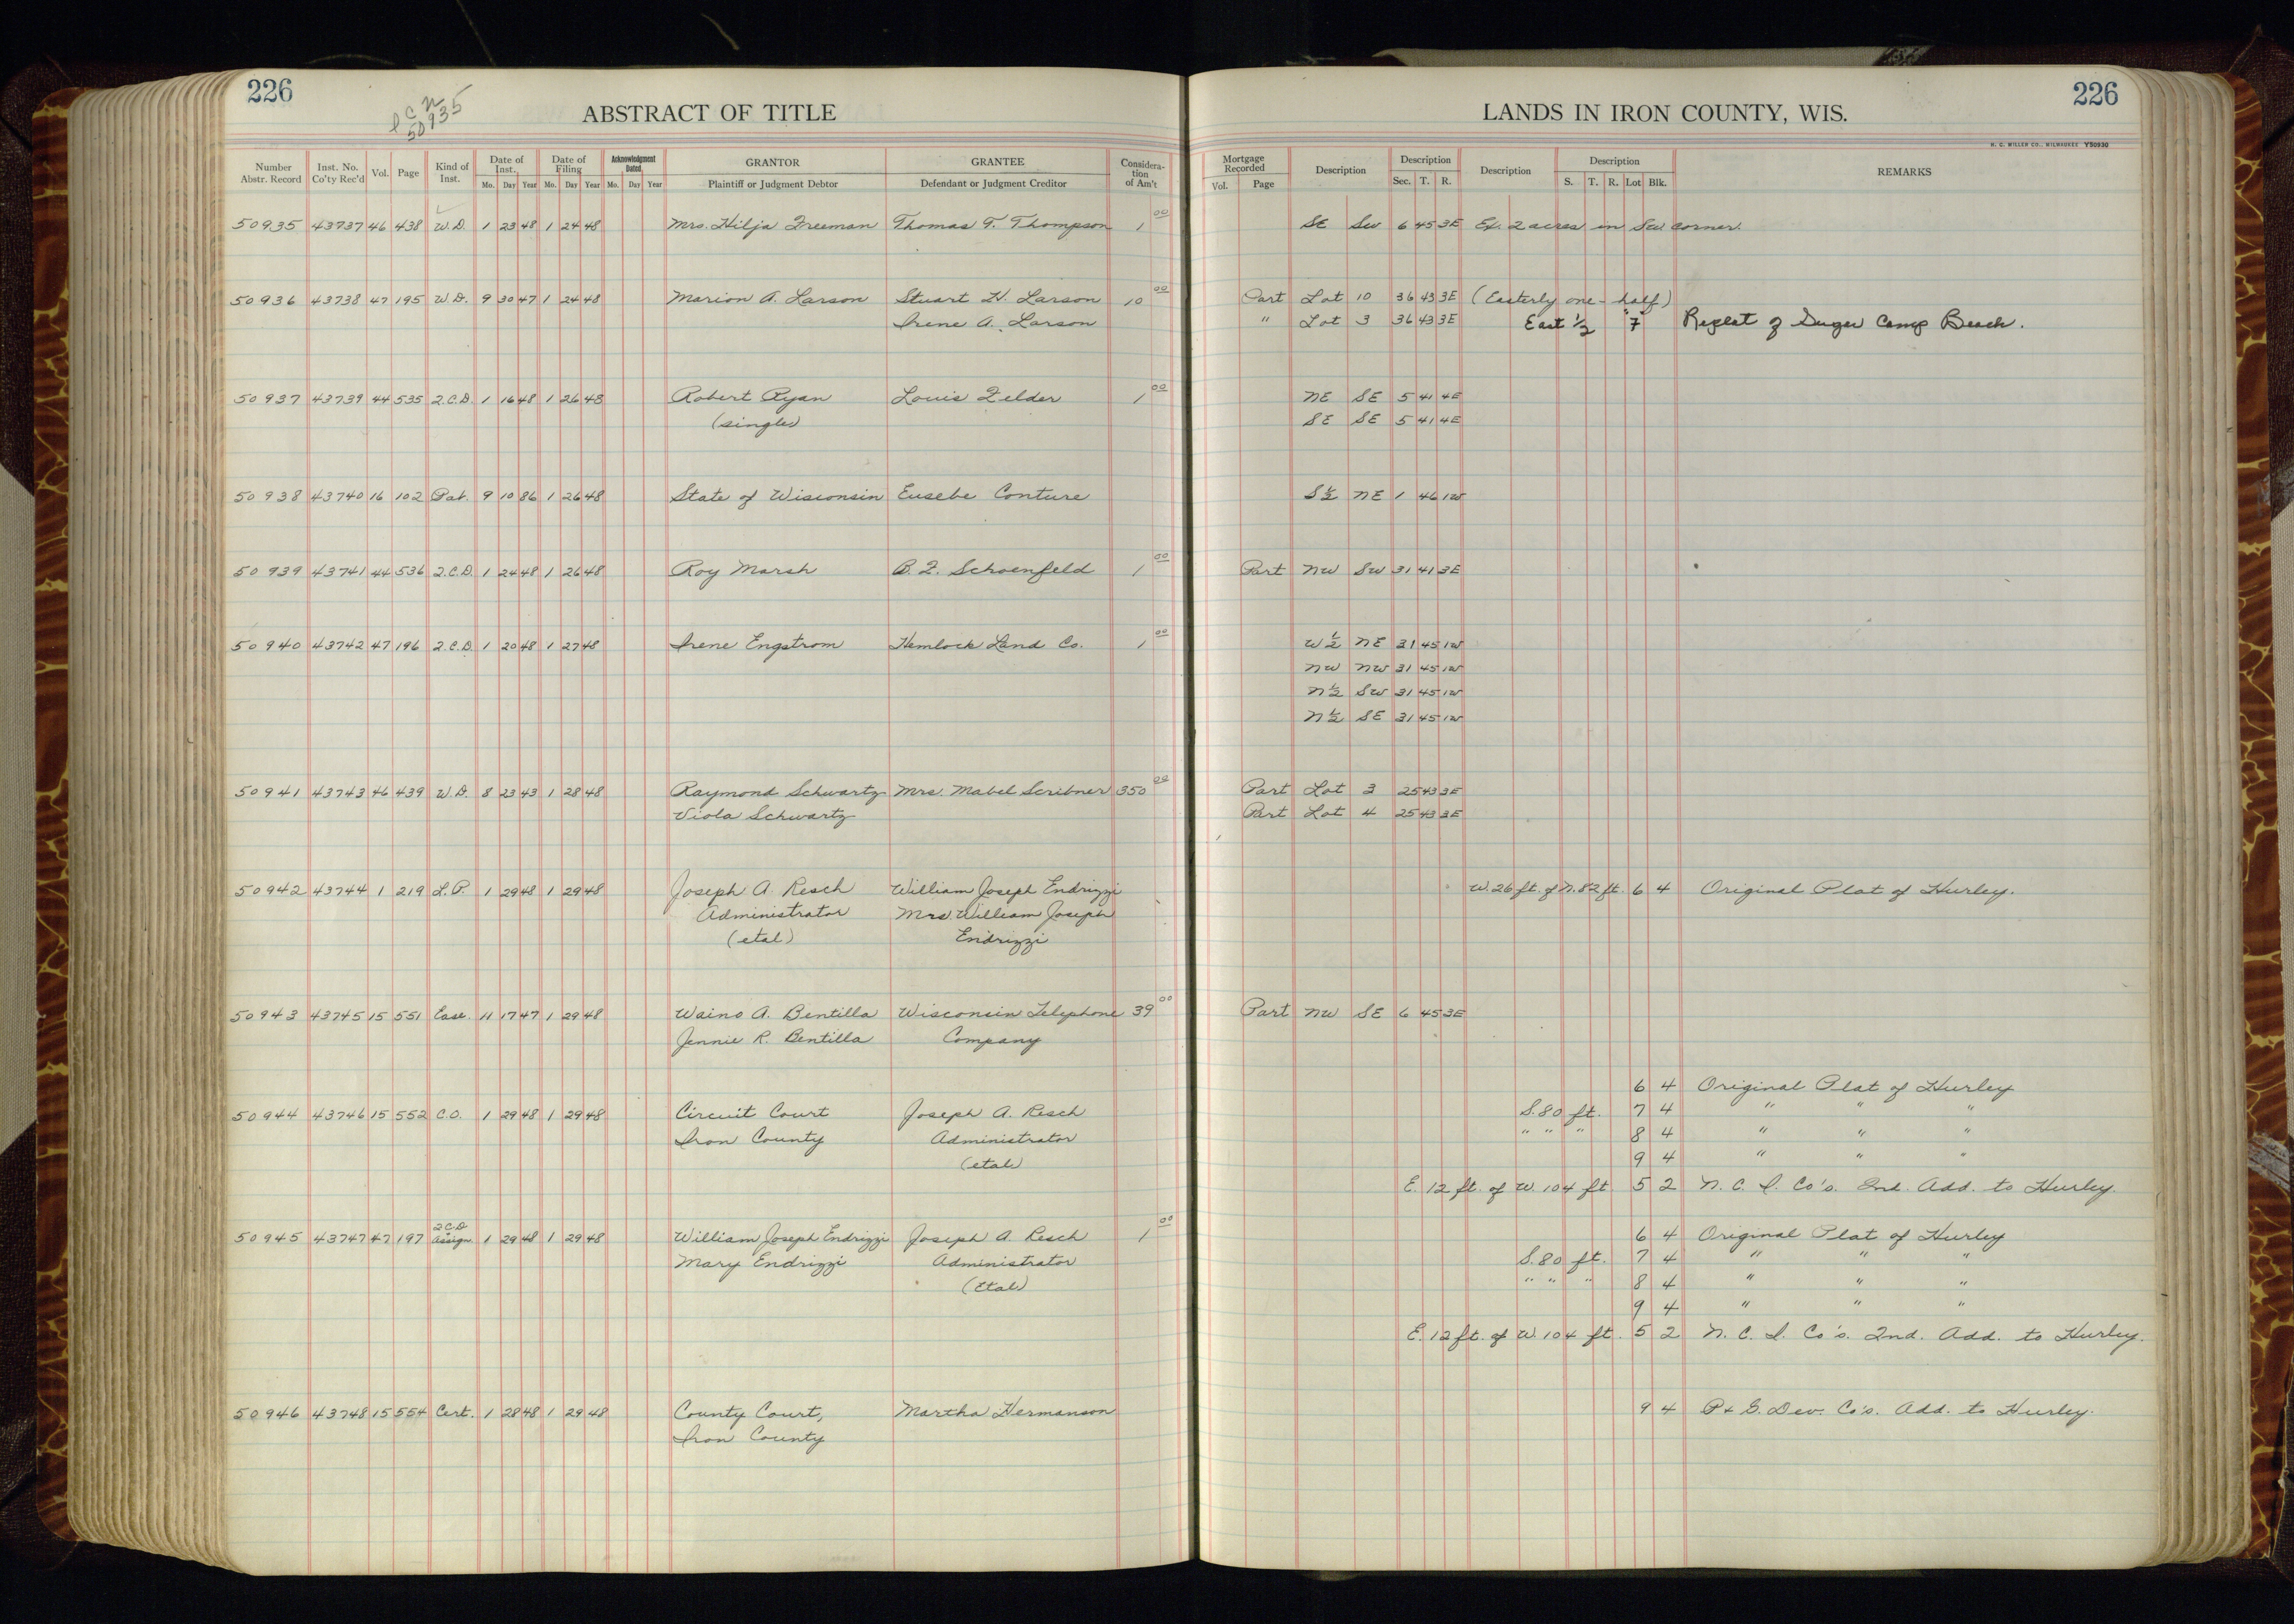 226
ABSTRACT OF TITLE
LANDS IN IRON COUNTY, WIS.
226
50935
H. C. MILLER CO., MILWAUKEE Y50930
Number Abstr. Record Inst. No. Co'ty Rec'd Vol. Page Kind of Inst. Date of Inst. Mo. Day Year Date of Filing Mo. Day Year Acknowledgment Dated Mo. Day Year GRANTOR Plaintiff or Judgment Debtor GRANTEE Defendant or Judgment Creditor Considera-tion of Am't Mortgage Recorded Vol. Page Description Description Sec. T. R. Description Description S. T. R. Lot Blk. REMARKS
50935 43737 46 438 W.D. 1 23 48 1 24 48 Mrs. Hilja Freeman Thomas T. Thompson 1 00 SE SW 6 45 3E Ex. 2 acres in SW corner.
50936 43738 47 195 W.D. 9 30 47 1 24 48 Marion A. Larson Stuart H. Larson 10 00 Part Lot 10 36 43 3E (Easterly one-half)
Irene A. Larson " Lot 3 36 43 3E East 1/2 "7" Replat of Sugar Camp Beach.
50937 43739 44 535 Q.C.D. 1 16 48 1 26 48 Robert Ryan Louis Felder 1 00 NE SE 5 41 4E
(single) SE SE 5 41 4E
50938 43740 16 102 Pat. 9 10 86 1 26 48 State of Wisconsin Eusebe Conture S 1/2 NE 1 46 1W
50939 43741 44 536 Q.C.D. 1 24 48 1 26 48 Roy Marsh B. F. Schoenfeld 1 00 Part NW SW 31 41 3E
50940 43742 47 196 Q.C.D. 1 20 48 1 27 48 Irene Engstrom Hemlock Land Co. 1 00 W 1/2 NE 31 45 1W
NW NW 31 45 1W
N 1/2 SW 31 45 1W
N 1/2 SE 31 45 1W
50941 43743 46 439 W.D. 8 23 43 1 28 48 Raymond Schwartz Mrs. Mabel Scribner 350 00 Part Lot 3 25 43 3E
Viola Schwartz Part Lot 4 25 43 3E
50942 43744 1 219 L.P. 1 29 48 1 29 48 Joseph A. Resch William Joseph Endrizzi W. 26 ft. of N. 82 ft. 6 4 Original Plat of Hurley.
Administrator Mrs. William Joseph
(etal) Endrizzi
50943 43745 15 551 Ease. 11 17 47 1 29 48 Waino A. Bentilla Wisconsin Telephone 39 00 Part NW SE 6 45 3E
Jennie R. Bentilla Company
6 4 Original Plat of Hurley
50944 43746 15 552 C.O. 1 29 48 1 29 48 Circuit Court Joseph A. Resch S. 80 ft. 7 4 " " "
Iron County Administrator " " " 8 4 " " "
(etal) 9 4 " " "
E. 12 ft. of W. 104 ft 5 2 N. C. I. Co's. 2nd. Add. to Hurley.
50945 43747 47 197 Q.C.D. & Assign. 1 29 48 1 29 48 William Joseph Endrizzi Joseph A. Resch 1 00 6 4 Original Plat of Hurley
Mary Endrizzi Administrator S. 80 ft. 7 4 " " "
(Etal) " " " 8 4 " " "
9 4 " " "
E. 12 ft. of W. 104 ft. 5 2 N. C. I. Co's. 2nd. Add. to Hurley.
50946 43748 15 554 Cert. 1 28 48 1 29 48 County Court, Martha Hermanson 9 4 P & G. Dev. Co's. Add. to Hurley.
Iron County